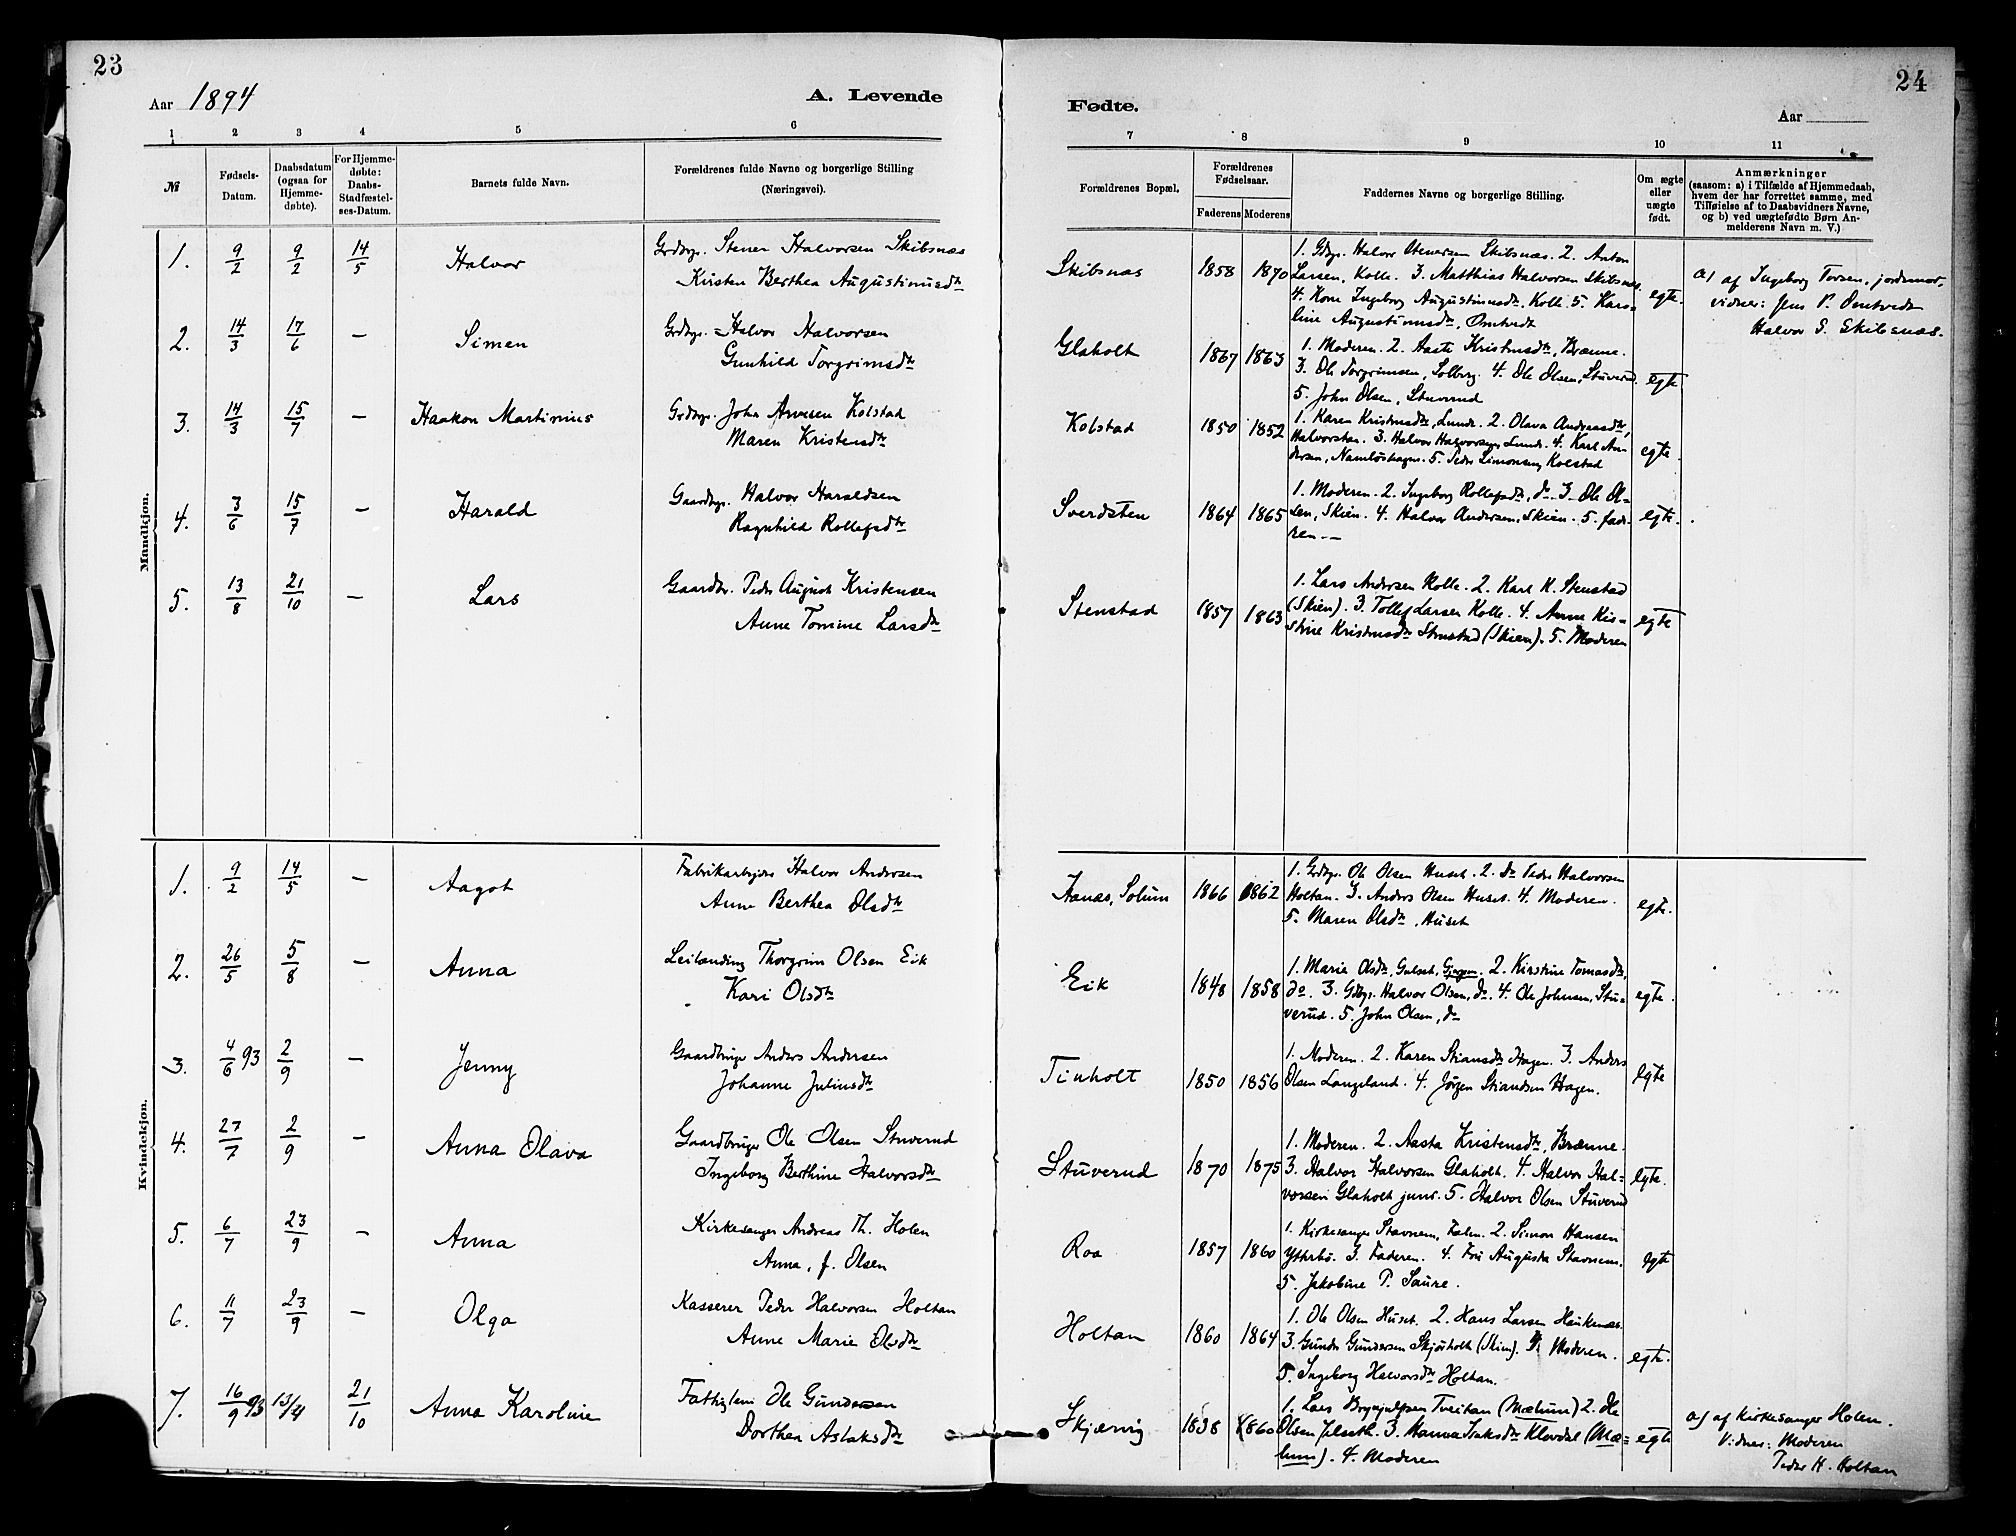 23
24
Aar 1894
A. Levende
Fødte.
Aar
1 2 3 4 5 6 7 8 9 10 11
№
Fødsels-
Datum.
Daabsdatum
(ogsaa for
Hjemme-
døbte).
For Hjemme-
døbte:
Daabs-
Stadfæstel-
ses-Datum.
Barnets fulde Navn.
Forældrenes fulde Navne og borgerlige Stilling
(Næringsvei).
Forældrenes Bopæl.
Forældrenes
Fødselsaar.
Faderens Moderens
Faddernes Navne og borgerlige Stilling.
Om ægte
eller
uægte
født.
Anmærkninger
(saasom: a) i Tilfælde af Hjemmedaab,
hvem der har forrettet samme, med
Tilføielse af to Daabsvidners Navne,
og b) ved uægtefødte Børn An-
melderens Navn m. V.)
Mandkjøn.
1. 9/2 9/2 14/5 Halvor
Grdbgr. Stener Halvorsen Skibsnæs
Kirsten Berthea Augustinusdtr
Skibsnæs 1858 1870
1. Gdbgr. Halvor Stenersen Skibsnæs. 2. Anton
Larsen, Kolle. 3. Matthias Halvorsen Skibsnæs
4. Kone Ingeborg Augustinusdtr, Kolle 5. Karo-
line Augustinusdtr, Omtvedt
egte.
a) af Ingeborg Torsen, jordemor,
vidner: Jens P. Omtvedt
Halvor S. Skibsnæs.
2. 14/3 17/6 — Simen
Grdbgr. Halvor Halvorsen
Gunhild Torgrimsdtr
Glaholt 1867 1863
1. Moderen. 2. Aaste Kristensdtr, Brænne.
3. Ole Torgrimsen, Solberg. 4. Ole Olsen, Stuverud.
5. John Olsen, Stuverud
egte
3. 14/3 15/7 — Haakon Martinius
Grdbgr. John Arvesen Kolstad
Maren Kristensdtr
Kolstad 1850 1852
1. Karen Kristensdtr, Lunde. 2. Olava Andreasdtr,
Halvorstan. 3. Halvor Halvorsen, Lunde. 4. Karl An-
dersen, Namløshagen. 5. Peder Simonsen, Kolstad
egte.
4. 3/6 15/7 — Harald
Gaardbgr. Halvor Haraldsen
Ragnhild Rollefsdtr
Sverdsten 1864 1865
1. Moderen. 2. Ingeborg Rollefsdtr, do 3. Ole Ol-
sen, Skien. 4. Halvor Andersen, Skien. 5. fade-
ren.—
egte.
5. 13/8 21/10 — Lars
Gaardbr. Peder August Kristensen
Anne Tomine Larsdtr
Stenstad 1857 1863
1. Lars Andersen Kolle. 2. Karl K. Stenstad
(Skien). 3. Tollef Larsen Kolle. 4. Anne Kis-
stine Kristensdtr Stenstad (Skien). 5. Moderen
egte
Kvindekjøn.
1. 9/2 14/5 — Aagot
Fabrikarbejder Halvor Andersen
Anne Berthea Olsdtr
Hanæs, Solum 1866 1862
1. Grdbgr. Ole Olsen Huset. 2. do Peder Halvorsen
Holtan. 3. Anders Olsen Huset. 4. Moderen.
5. Maren Olsdtr, Huset
egte.
2. 26/5 5/8 — Anna
Leilænding Thorgrim Olsen Eik
Kari Olsdtr
Eik 1848 1858
1. Marie Olsdtr, Gulset, Gjerpen. 2. Kirstine Tomasdtr,
do. 3. Gdbgr. Halvor Olsen, do. 4. Ole Johnsen, Stu-
verud. 5. John Olsen, do
egte.
3. 4/6 93 2/9 — Jenny
Gaardbruger Anders Andersen
Johanne Juliusdtr
Tinholt 1850 1856
1. Moderen. 2. Karen Stiansdtr Hagen. 3. Anders
Olsen Langeland. 4. Jørgen Stiandsen Hagen.
egte
4. 27/7 2/9 — Anna Olava
Gaardbruger Ole Olsen Stuverud
Ingeborg Berthine Halvorsdtr
Stuverud 1870 1875
1. Moderen. 2. Aasta Kristensdtr, Brænne.
3. Halvor Halvorsen Glaholt. 4. Halvor Hal-
vorsen Glaholt junr. 5. Halvor Olsen Stuverud
egte.
5. 6/7 23/9 — Anna
Kirkesanger Andreas Th. Holen
Anna, f. Olsen
Roa 1857 1860
1. Kirkesanger Stavnem, 2. Simon Hansen
Ytterbø. 3. Faderen. 4. Fru Augusta Stavnem.
5. Jakobine P. Saure.
egte
6. 11/7 23/9 — Olga
Kasserer Peder Halvorsen Holtan
Anne Marie Olsdtr
Holtan 1860 1864
1. Ole Olsen Huset. 2. Hans Larsen Haukenæs.
3. Gunder Gundersen Skjørholt (Skien). 4. Moderen.
5. Ingeborg Halvorsdtr Holtan.
egte.
7. 16/9 93 13/4 21/10 Anna Karoline
Fattiglem Ole Gundersen
Dorthea Aslaksdtr
Skjærvig 1838 1860
1. Lars Brynjulfsen Tveitan (Mælum) 2. Ole
Olsen Jelseth. 3. Hanna Isaksdtr Klovdal (Mæ-
lum). 4. Moderen
egte
a) af Kirkesanger Holen.
Vidner: Moderen
Peder H. Holtan